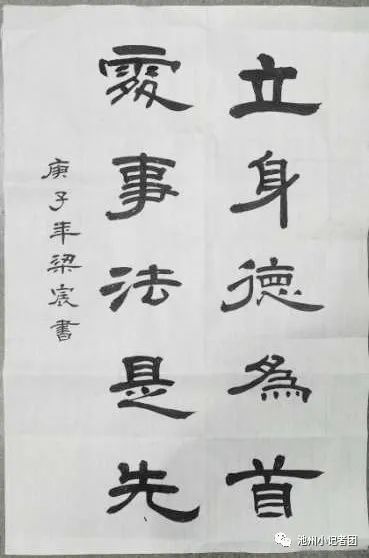 立身德為首
處事法是先
庚子年梁宸書
池州小记者团